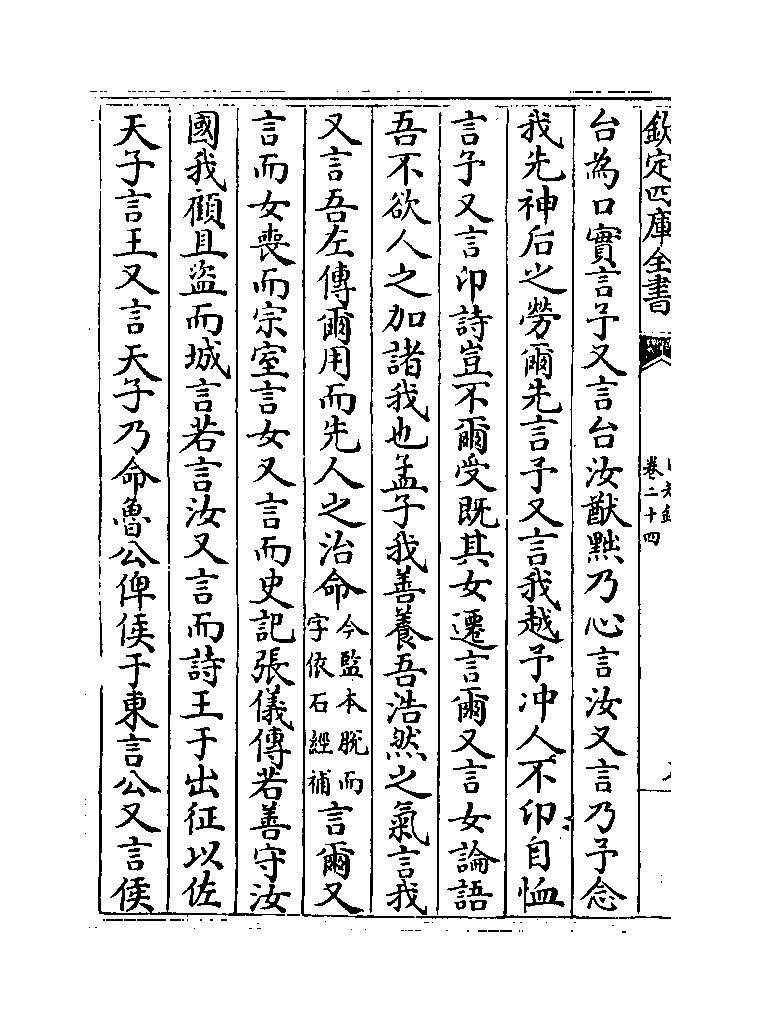 欽定四庫全書
卷二十四
台為口實言予又言台汝猷黜乃心言汝又言乃予念
我先神后之勞爾先言予又言我越予冲人不卬自恤
言予又言卬詩豈不爾受既其女遷言爾又言女論語
吾不欲人之加諸我也孟子我善養吾浩然之氣言我
又言吾左傳爾用而先人之治命今監本脱而字依石經補言爾又
言而女喪而宗室言女又言而史記張儀傳若善守汝
國我顧且盜而城言若言汝又言而詩王于出征以佐
天子言王又言天子乃命魯公俾侯于東言公又言侯